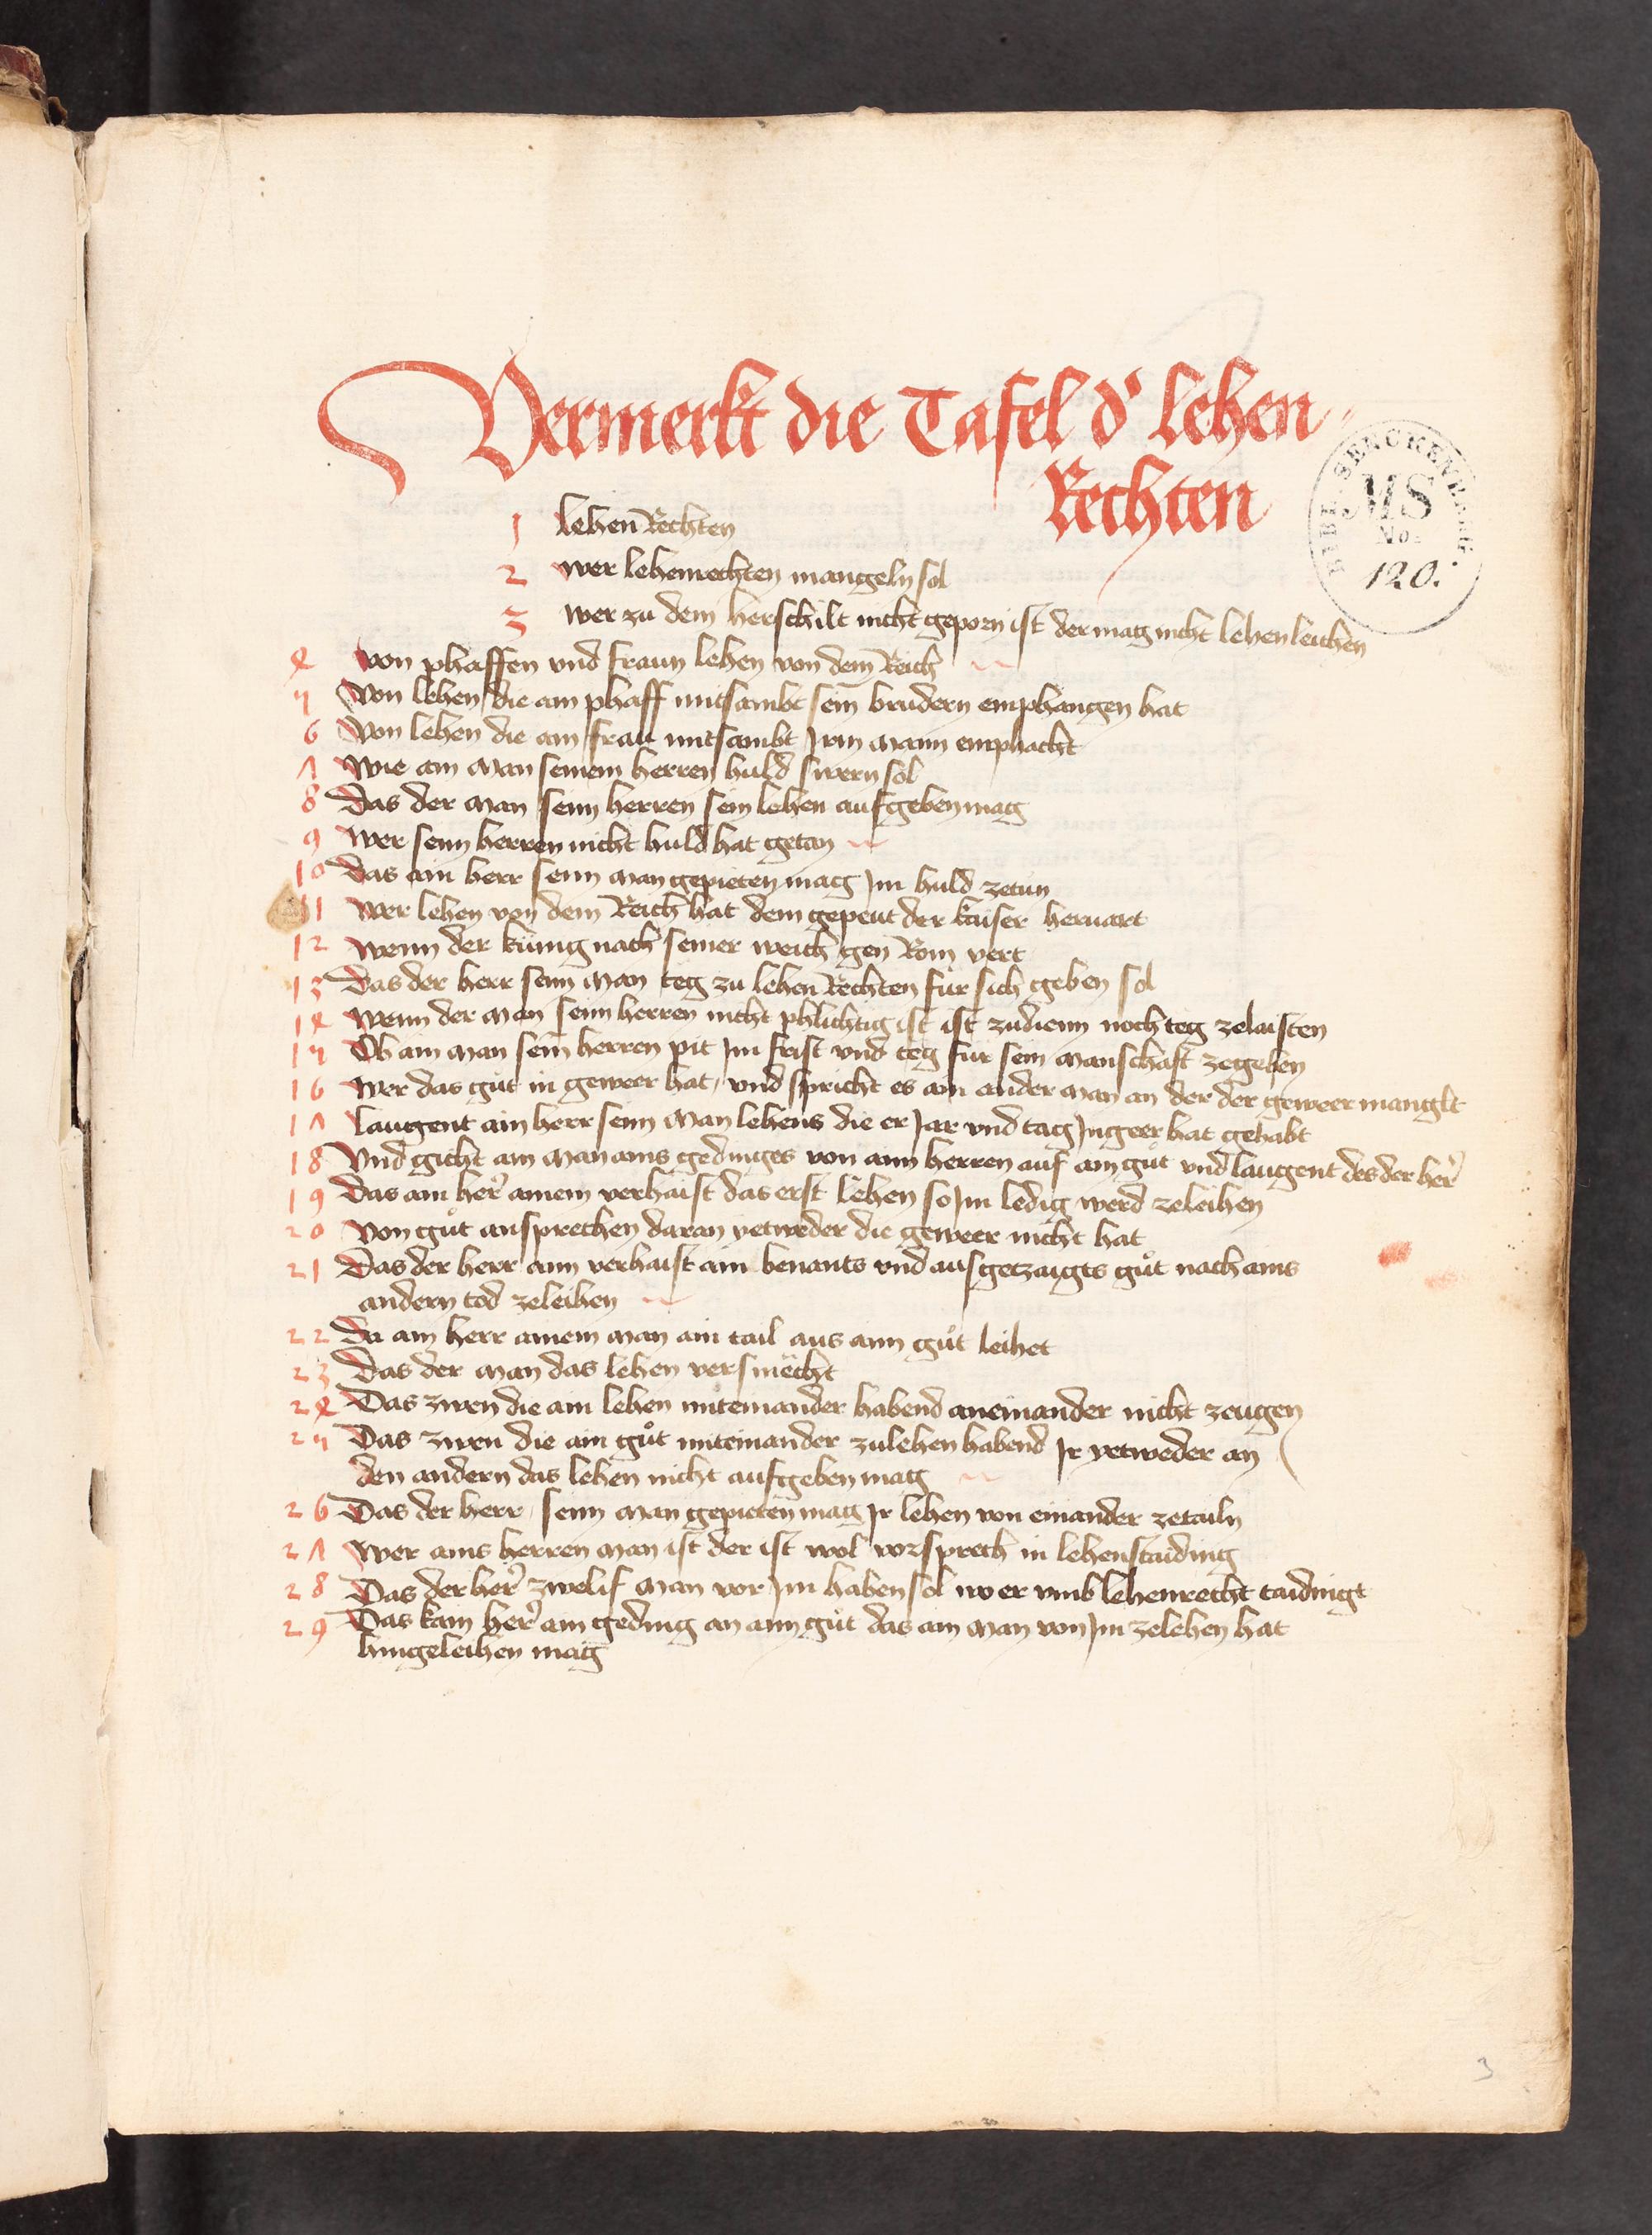 Vermerkt die Tafel d' lehen
Rechten
BIBL. SENCKENBERG.
MS
No.
120.
1 lehen Rechten
2 wer lehenrechten mangeln sol
3 wer zu dem herschilt nicht geporn ist der mag nicht lehen leichen
4 von phaffen vnd fraun lehen von dem Reich
5 Von lehen die ain phaff mitsambt sein brudern emphangen hat
6 Von lehen die ain frau mitsambt Irm mann emphacht
7 Wie ain man seinem herren huld swern sol
8 Das der man seinn herren sein lehen aufgeben mag
9 Wer seinn herren nicht huld hat getan
10 Das ain herr seinn man gepieten mag Im huld zetun
11 Wer lehen von dem Reich hat dem gepeut der kaiser heruart
12 wenn der kunig nach seiner weich gen Rom vert
13 Das der herr seinn man teg zu lehen Rechten fur sich geben sol
14 Wenn der man seinn herren nicht phlichtig ist ist zudienn noch teg zelaisten
15 Ob ain man sein herren pit Im frist vnd teg fur sein manschaft zegeben
16 Wer das gůt in geweer hat, vnd spricht es ain ander man an der der geweer manglt
17 laugent ain herr seinn man lehens die er Jar vnd tag Ingeer hat gehabt
18 Vnd gicht ain man ains gedinges von ainn herren auf ain gůt vnd laugent des der her'
19 Das ain her' ainem verhaist das erst lehen so Im ledig werd zeleihen
20 Von gůt ansprechen daran yetweder die geweer nicht hat
21 Das der herr ainn verhaist ain benants vnd ausgetzaigts gůt nach ains
andern tod zeleihen
22 Da ain herr ainem man ain tail aus ainn gůt leihet
23 Das der man das lehen versmecht
24 Das zwen die ain lehen miteinander habend aneinander nicht zeugen
25 Das zwen die ain gůt miteinander zulehen habend Ir yetweder an
den andern das lehen nicht aufgeben mag
26 Das der herr seinn man gepieten mag Ir lehen von einander zetailn
27 Wer ains herren man ist der ist wol vorsprech in lehenstaiding
28 Das der her' zwelif man vor Im haben sol wo er vmb lehenrecht taidingt
29 Das kain her' ain geding an ainn gůt das ain man von Im zelehen hat
hingeleihen mag
3